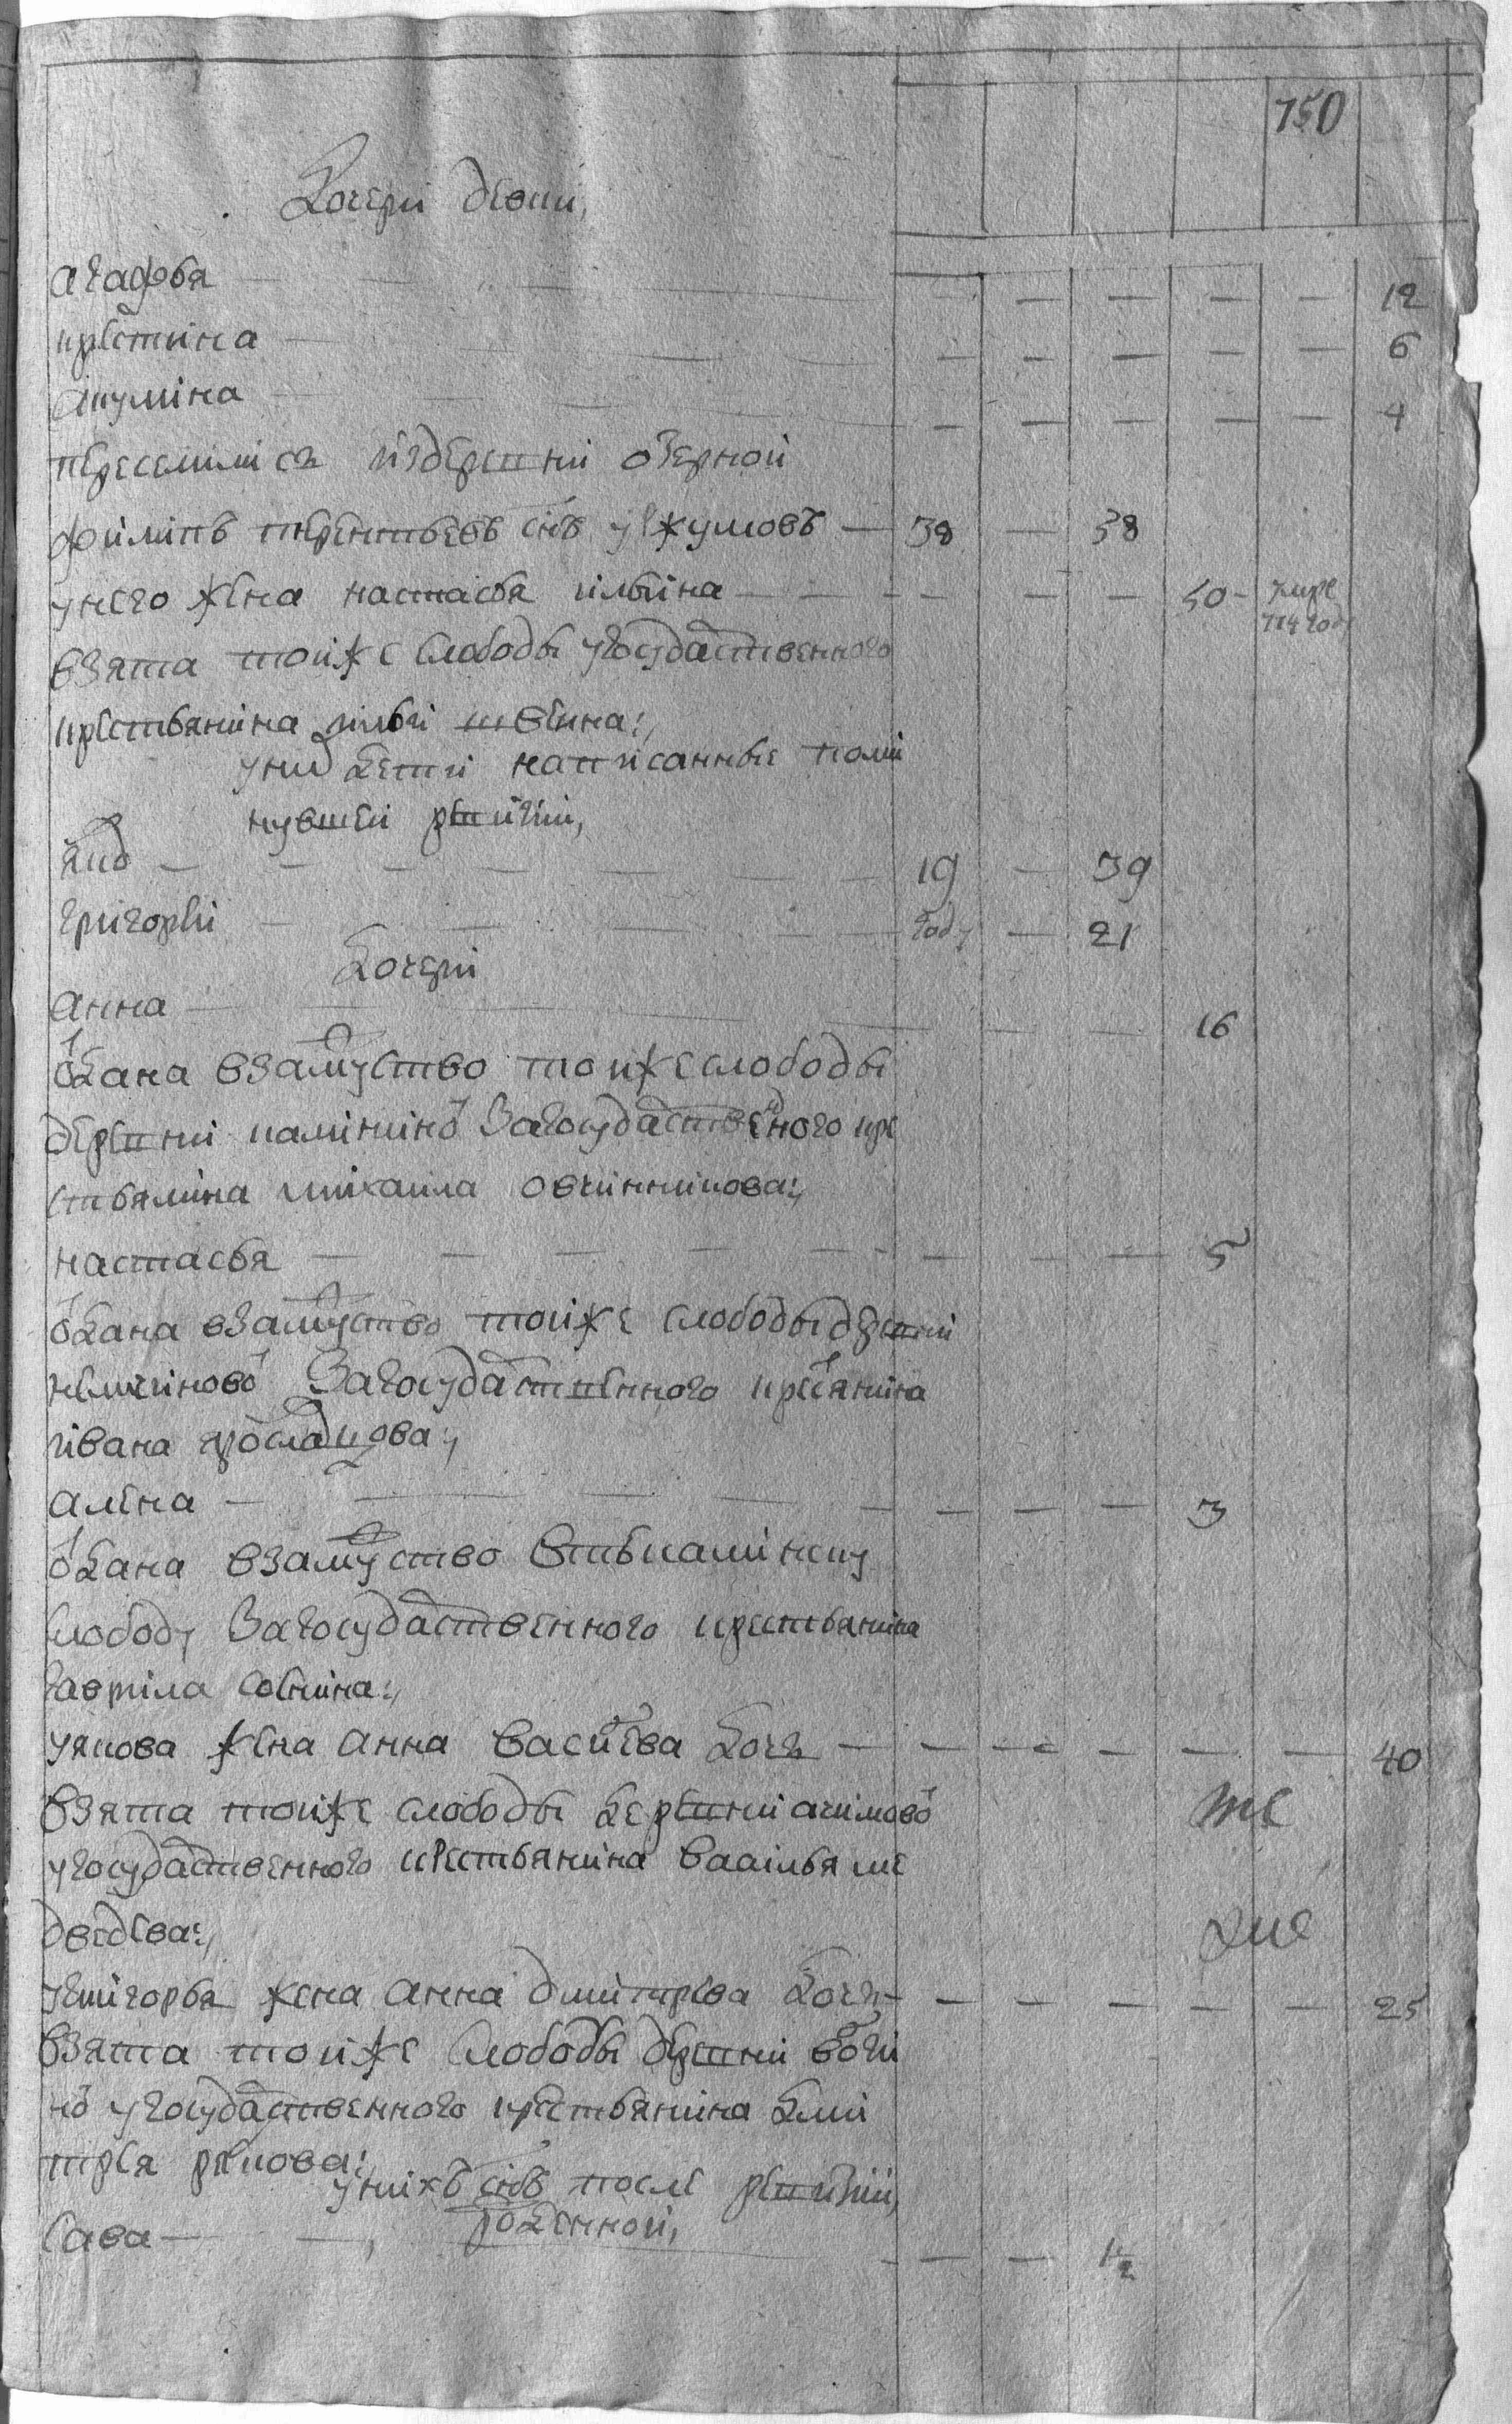 750
Дочери девки,
агафья — — — — — 12
крестина — — — — — 6
акулина — — — — — 4
переселились издеревни озерной
филипъ терентьевъ снъ ужумовъ — 38 — 58
унего жена настасья ильина — — — 50 - умре 784 году
взята тойже слободы угосударственного
крестьянина ильи швеина:,
уних дети написанные поми
нувшей ревизии,
яков — 19 — 39
григореи — году — 21
Дочери
анна — — — 16
одана взамуство тойже слободы
деревни калинино Загосударственого кре
стьянина михаила овчинникова:,
настасья — — — 5
одана взамуство тойже слободы деревни
немчиново Загосударственного кресянина
ивана ярославцова:,
алена — — — 3
одана взамуство встькаминску
слободу Загосударственного крестьянина
гаврила совнина:,
уякова жена анна василева дочь — — — — — — 40
Взята тойже слободы деревни акимово
угосударственного крестьянина василья ме
дведева:,
уегригорья жена анна дмитрева дочь — — — — — — 25
Взята тойже слободы деревни
но угосударственного крестьянина дми
трея рякова:,
унихъ снъ после ревизии,
роденной,
Сава — — — 1/2